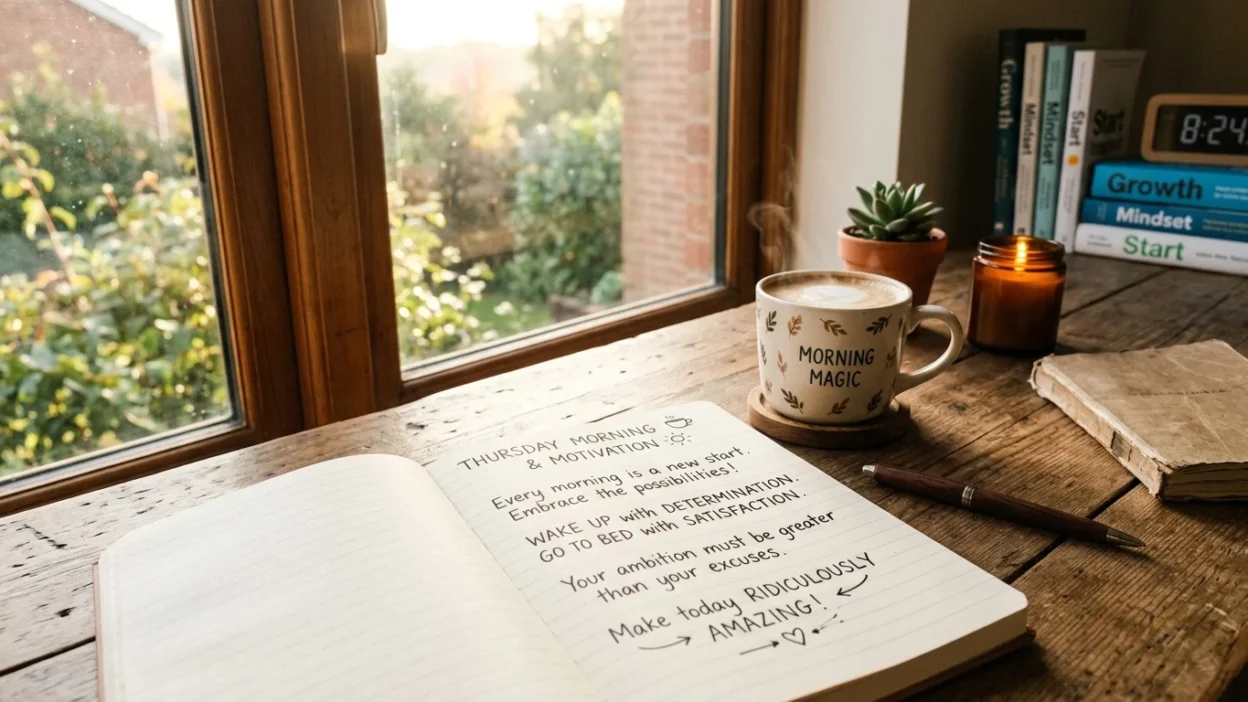 THURSDAY MORNING
& MOTIVATION
Every morning is a new start.
Embrace the possibilities!
WAKE UP with DETERMINATION.
GO TO BED with SATISFACTION.
Your ambition must be greater
than your excuses.
Make today RIDICULOUSLY
AMAZING!
MORNING
MAGIC
Growth
Mindset
Mindset
Start
Start
8:24
Growth
Mindset
Start